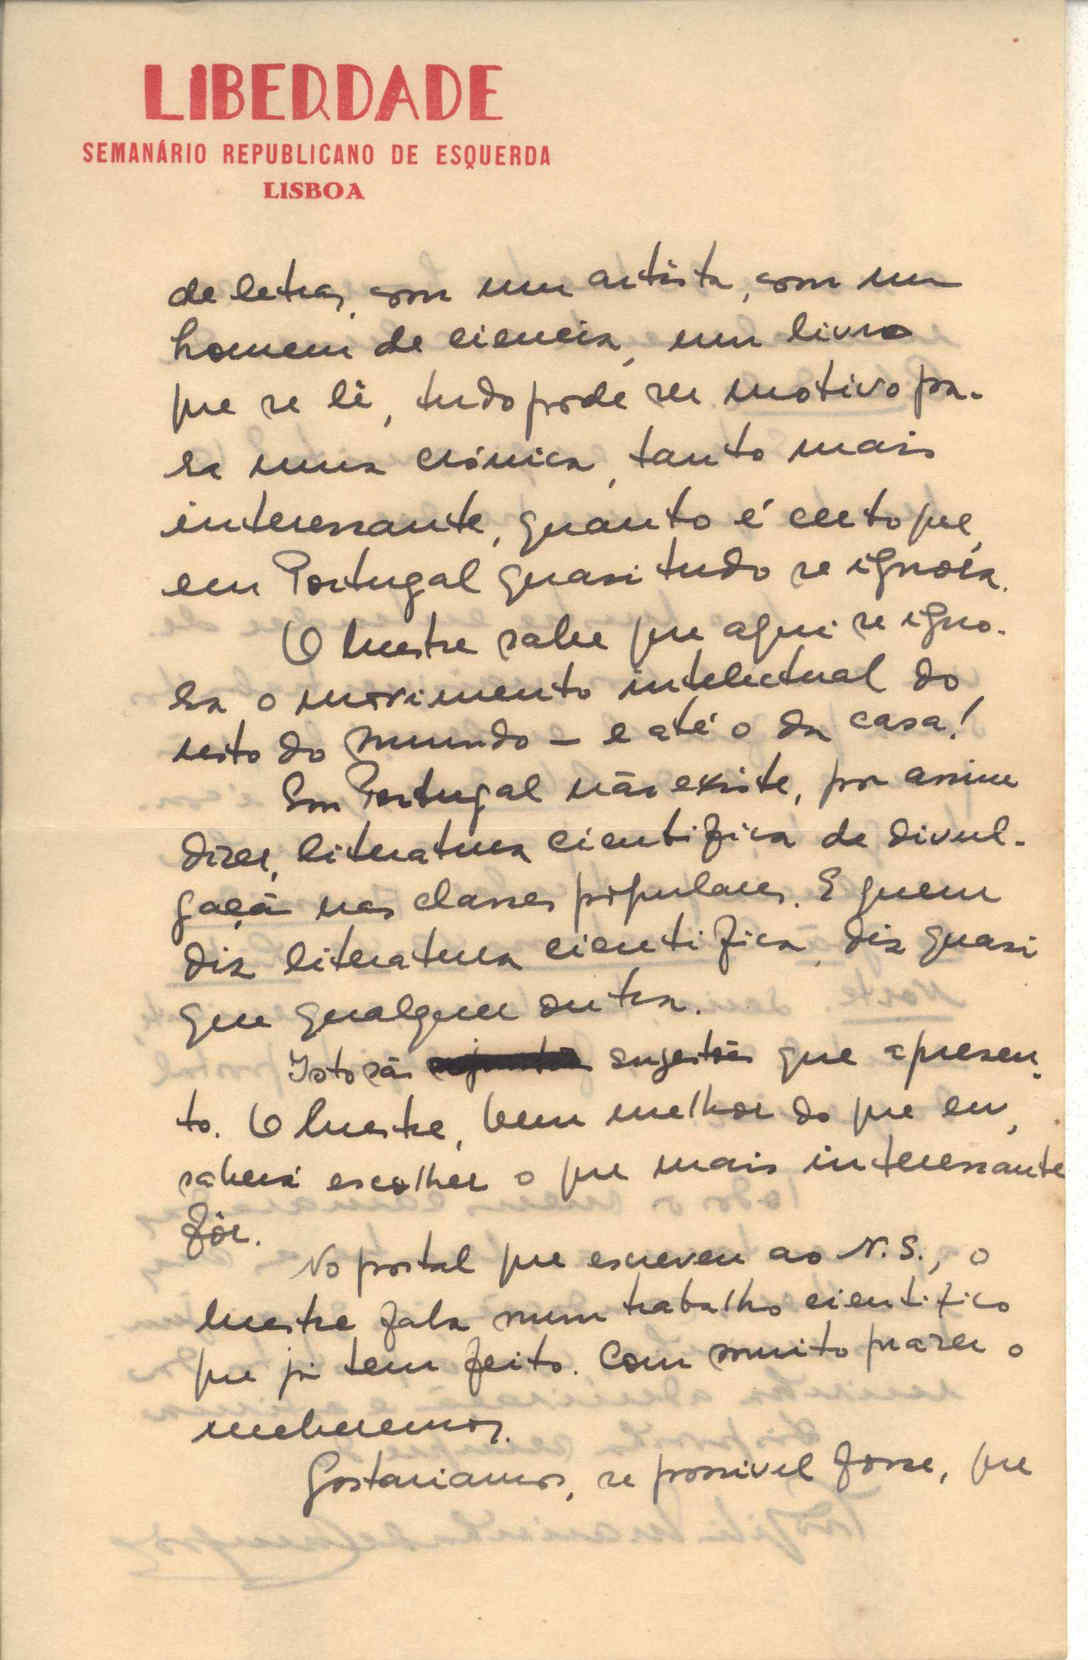 LIBERDADE
SEMANÁRIO REPUBLICANO DE ESQUERDA
LISBOA
de letras, com um artista, com um
homem de ciencia, um livro
que se lê, tudo pode ser motivo pa-
ra uma crónica, tanto mais
interessante, quanto é certo que,
em Portugal quasi tudo se ignora.
O Mestre sabe que aqui se igno-
ra o movimento intelectual do
resto do mundo – e até o da casa!
Em Portugal não existe, por assim
dizer, literatura cientifica de divul-
gação nas classes populares. E quem
diz literatura cientifica, diz quasi
que qualquer outra.
Isto são sugestões que apresen-
to. O Mestre, bem melhor do que eu,
saberá escolher o que mais interessante
fôr.
No postal que escreveu ao N. S., o
Mestre fala num trabalho cientifico
que já tem feito. Com muito prazer o
receberemos.
Gostariamos, se possivel fosse, que